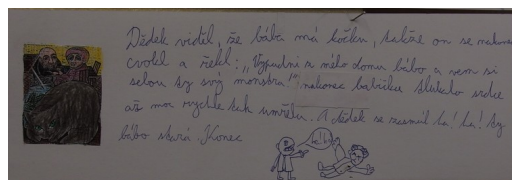 Dědek viděl, že bába má kočku, takže on se nakonec
cvokl a řekl: „Vypadni z mého domu bábo a vem si
sebou ty svý monstra!" nakonec babičku tluklo srdce
až moc rychle tak umřela. A dědek se zasmál ha! ha! ty
bábo stará. Konec
ha! ha!